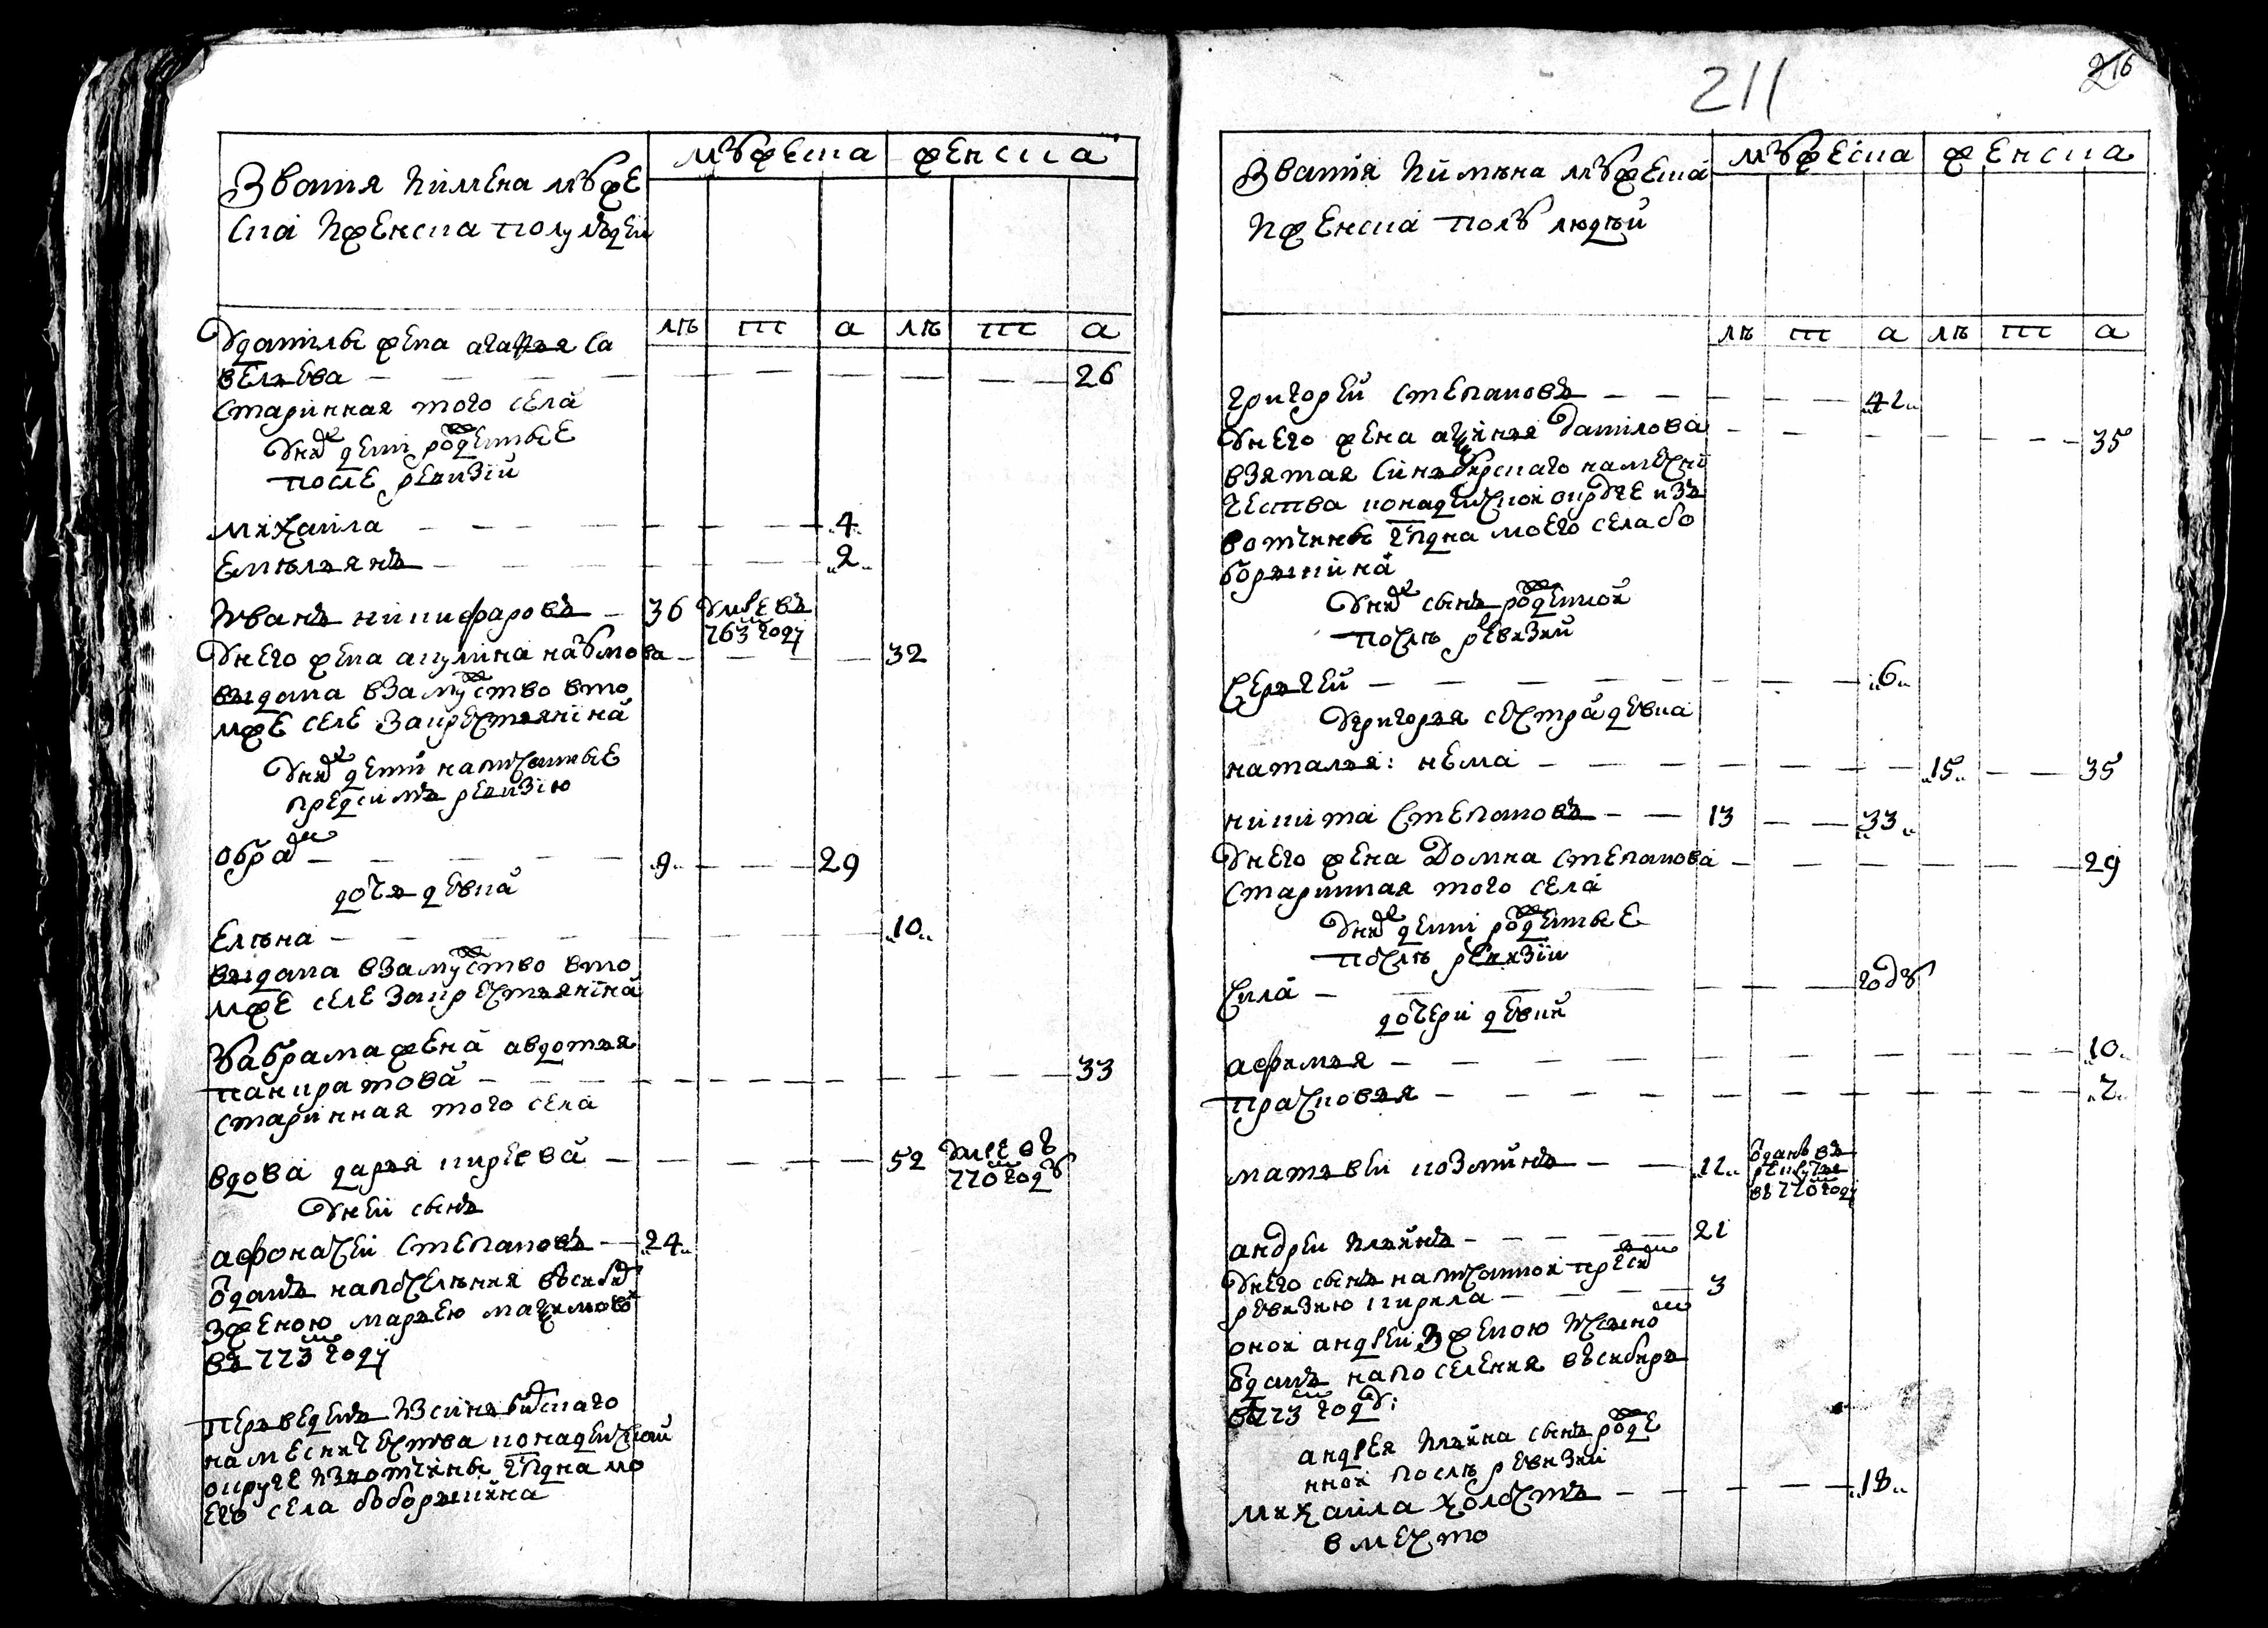 мужеска женска
Звания Иимена муже
ска Иженска полу людей
лѣ п а лѣ п а
Уданилы жена агафья са
вельева — 26
старинная того села
Уних дети рожденные
после ревизии
михаила — 4
Емельянъ — 2
Иванъ никифаровъ — 36 Умре въ
763м году
Унего жена акулина наумова — 32
выдана взамужство вто
мже селе закрестьянина
Уних дети написанные
предсимъ ревизию
абрам — 9 — 29
дочь девка
Елѣна — 10
выдана взамужство вто
мже селе закрестьянина
Уабрама жена авдотья
панкратова — 33
старинная того села
вдова дарья киреева — 52 Умре въ
770м году
Уней сынъ
афонасей степановъ — 24
отданъ напоселѣния всибирь
зженою марьею максимовой
въ 773м году
переведенъ Изсинбирскаго
наместничества конадейской
округе Извотчины гпдна мо
его села боборыкина
211
216
мужеска женска
Звания Иимяна мужеска
Иженска полу людѣй
лѣ п а лѣ п а
григорей степановъ — 42
Унего жена аксинья данилова — 35
взятая синьбирскаго намесни
чества конадейской округе изъ
вотчины гпдна моего села бо
борыкина
Уних сынъ рожденной
послѣ ревизии
Сергей — 6
Угригорья сестра девка
наталья: нема — 15 — 35
никита Степановъ — 13 — 33
Унего жена Домна степанова — 29
старинная того села
Уних дети рожденные
послѣ ревизии
Сила — году
дочери девки
афимья — 10
прасковья — 7
матвеи козминъ — 12 отданъ въ
рекруты
въ 770м году
андреи Ильинъ — 21
Унего сынъ написанной пресим
ревизию кирила — 3
оной андреи Зженою
отданъ напоселения всибирь
въ 773м году:
андрея Ильина сынъ рожде
нной послѣ ревизии
михаила холостъ — 18
вместо